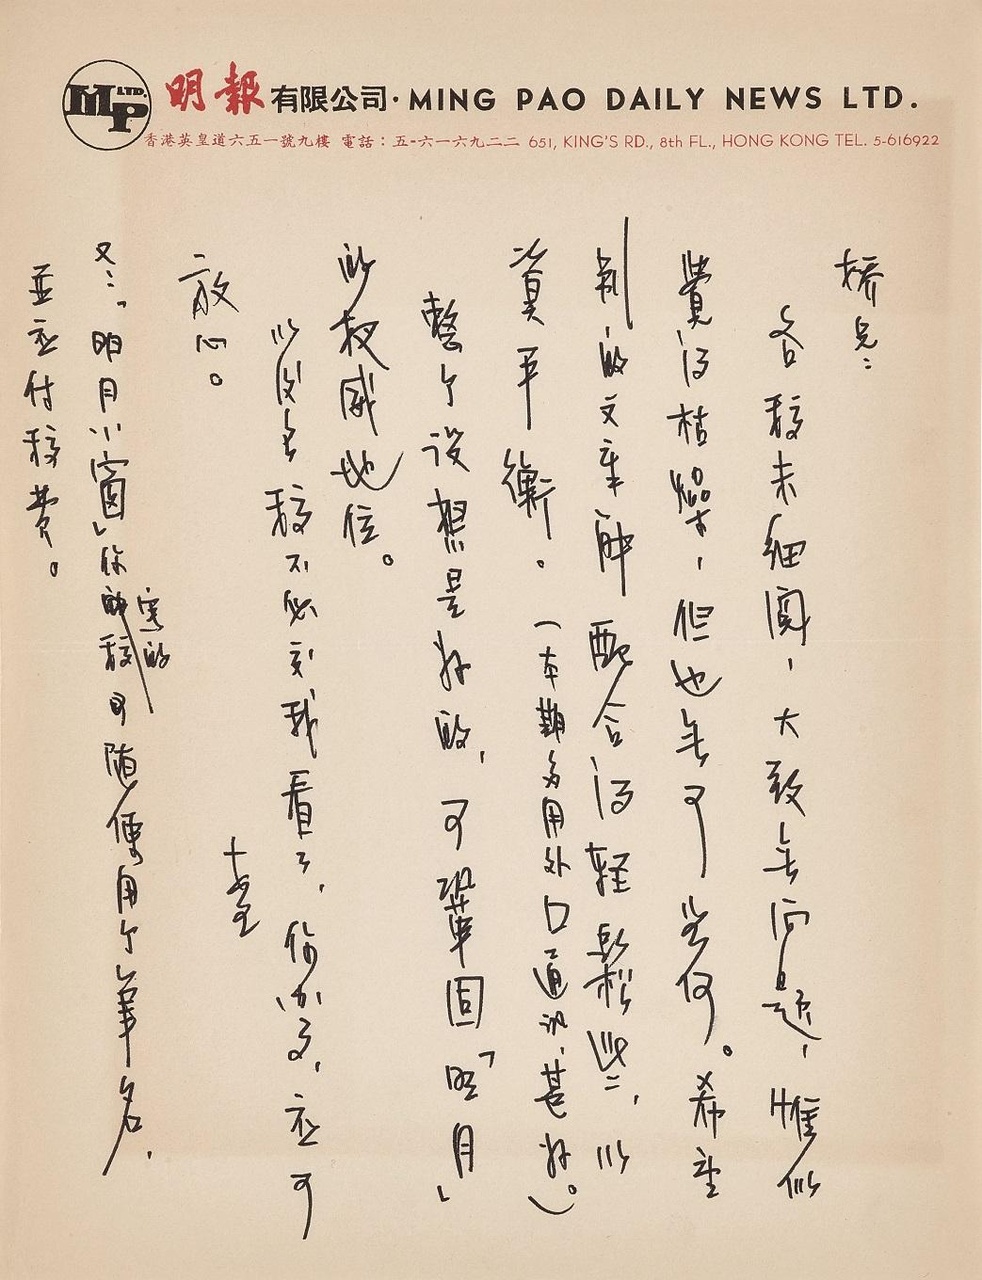 MP LTD.
明報有限公司·MING PAO DAILY NEWS LTD.
香港英皇道六五一號九樓 電話：五-六一六九二二 651, KING'S RD., 8th FL., HONG KONG TEL. 5-616922
橋兄：
各稿未细閱，大致無问题，惟似
覺得枯燥，但也無可奈何。希望
別的文章能配合得轻鬆些，以
資平衡。（本期多用外囗通訊，甚好）。
整个設想是好的，可鞏固「明月」
的权威地位。
以後各稿不必交我看了，你办了，应可
放心。
又：「明月小窗」你寫的稿可随便用个筆名，
並应付稿費。